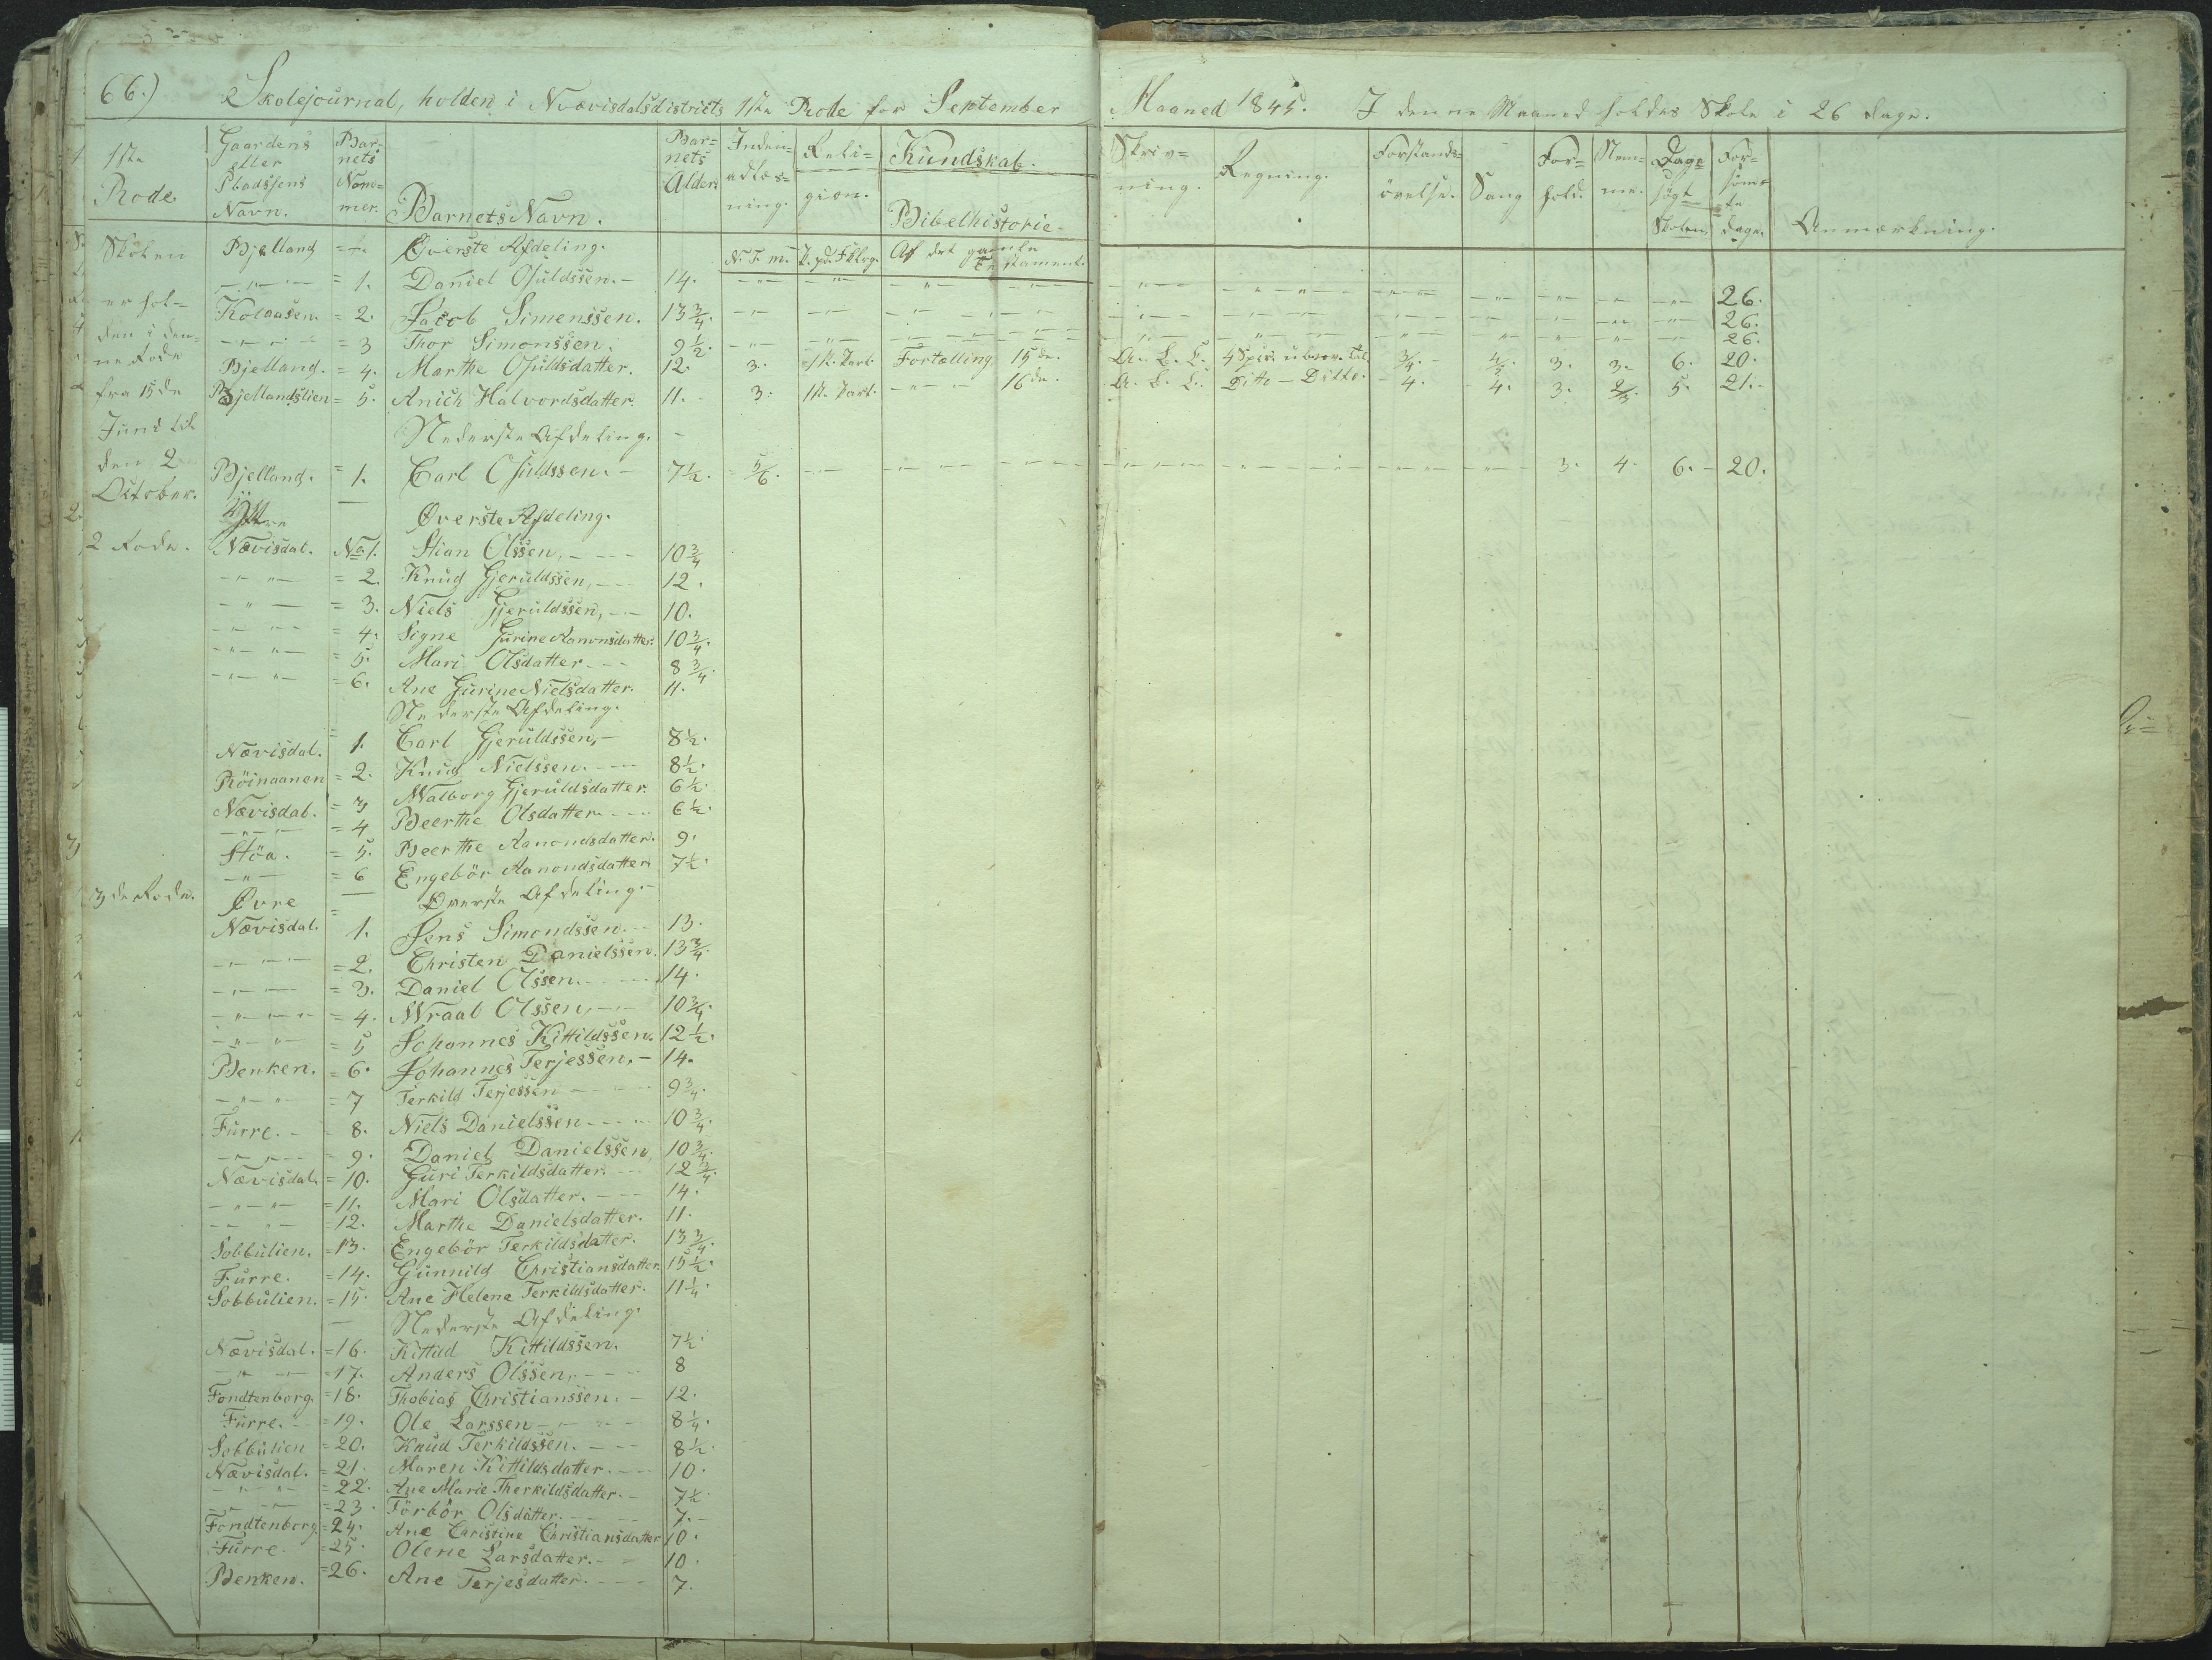 66.) Skolejournal, holden i Nævisdalsdistricts 1ste Rode for September Maaned 1845. I denne Maaned holdes Skole i 26 dage.
1ste Rode. | Gaardens eller Pladssens Navn. | Barnets Nommer. | Barnets Navn. | Barnets Alder. | Indenadlæsning. | Religion. | Kundskab. Bibelhistorie. | Skrivning. | Regning. | Forstandsövelse. | Sang | Forhold. | Nemme. | Dage søgt Skolen. | Forsömte dage. | Anmærkning.
Skolen er holden i denne Rode fra 15de Juni til den 2 October.
Bjelland = Øverste Afdeling. N. T. m. Af det gamle Testament.
— " — = 1. Daniel Osuldssen. — 14. 26.
Kolaasen. = 2. Jacob Simenssen. 13 3/4. 26.
— " — = 3 Thor Simonssen. 9 1/2. 26.
Bjelland. = 4. Marthe Osuldsdatter. 12. 3. 1st. Part. Fortælling 15de. A. b. c. 4 Spec. 3/4. 4/5. 3. 3. 6. 20.
Bjellandslien = 5. Anich Halvordsdatter. 11. 3. 1st. Part. — " — 16de. A. b. c. Dito — Ditto. 4. 4. 3. 2/3. 5. 21.
Nederste Afdeling.
Bjelland. = 1. Carl Osuldssen. — 7 1/2. = 5/6. 3. 4. 6. 20.
Yttre — Øverste Afdeling.
2 Rode. Nævisdal. No 1. Stian Olssen, 10 3/4
— " — = 2. Knud Gjeruldssen, 12.
— " — = 3. Niels Gjeruldssen, 10.
— " — = 4. Signe Gurine Aanonsdatter. 10 3/4.
— " — = 5. Mari Olsdatter 8 3/4.
— " — = 6. Ane Gurine Nielsdatter. 11.
Nederste Afdeling.
Nævisdal. = 1. Carl Gjeruldssen, 8 1/2.
Röinaanen = 2. Knud Nielssen. 8 1/2.
Nævisdal. = 3 Walborg Gjeruldsdatter. 6 1/2.
— " — = 4 Beerthe Olsdatter. 6 1/2.
Stöa. = 5. Beerthe Aanondsdatter. 9.
— " — = 6 Engebör Aanondsdatter. 7 1/2.
3de Rode. Øvre — Øverste Afdeling.
Nævisdal. 1. Jens Simondssen. 13.
— " — = 2. Christen Danielssen. 13 3/4.
— " — = 3. Daniel Olssen. 14.
— " — = 4. Wraal Olssen, 10 3/4.
— " — = 5 Johannes Kittildssen. 12 1/2.
Benken. = 6. Johannes Terjessen. 14.
— " — = 7 Terkild Terjessen 9 3/4.
Furre. = 8. Niels Danielssen 10 3/4.
— " — = 9. Daniel Danielssen 10 3/4.
Nævisdal. = 10. Guri Terkildsdatter. 12 3/4.
— " — = 11. Mari Olsdatter. 14.
— " — = 12. Marthe Danielsdatter. 11.
Sobbulien. = 13. Engebör Terkildsdatter. 13 3/4.
Furre. = 14. Gunnild Christiansdatter. 15 1/2.
Sobbulien. = 15. Ane Helene Terkildsdatter. 11 1/4.
— Nederste Afdeling.
Nævisdal. = 16. Kittild Kittildssen. 7 1/2.
— " — = 17. Anders Olssen, 8
Fondtenborg. = 18. Thobias Christianssen. 12.
Furre. = 19. Ole Larssen 8 1/4.
Sobbulien = 20. Knud Terkildssen. 8 1/2.
Nævisdal. = 21. Maren Kittildsdatter. 10.
— " — = 22. Ane Marie Therkildsdatter. 7 1/2.
— " — = 23. Törbör Olsdatter. 7.
Fondtenborg. = 24. Ane Christine Christiansdatter 10.
Furre. = 25. Olene Larsdatter. 10.
Benken. = 26. Ane Terjesdatter. 7.